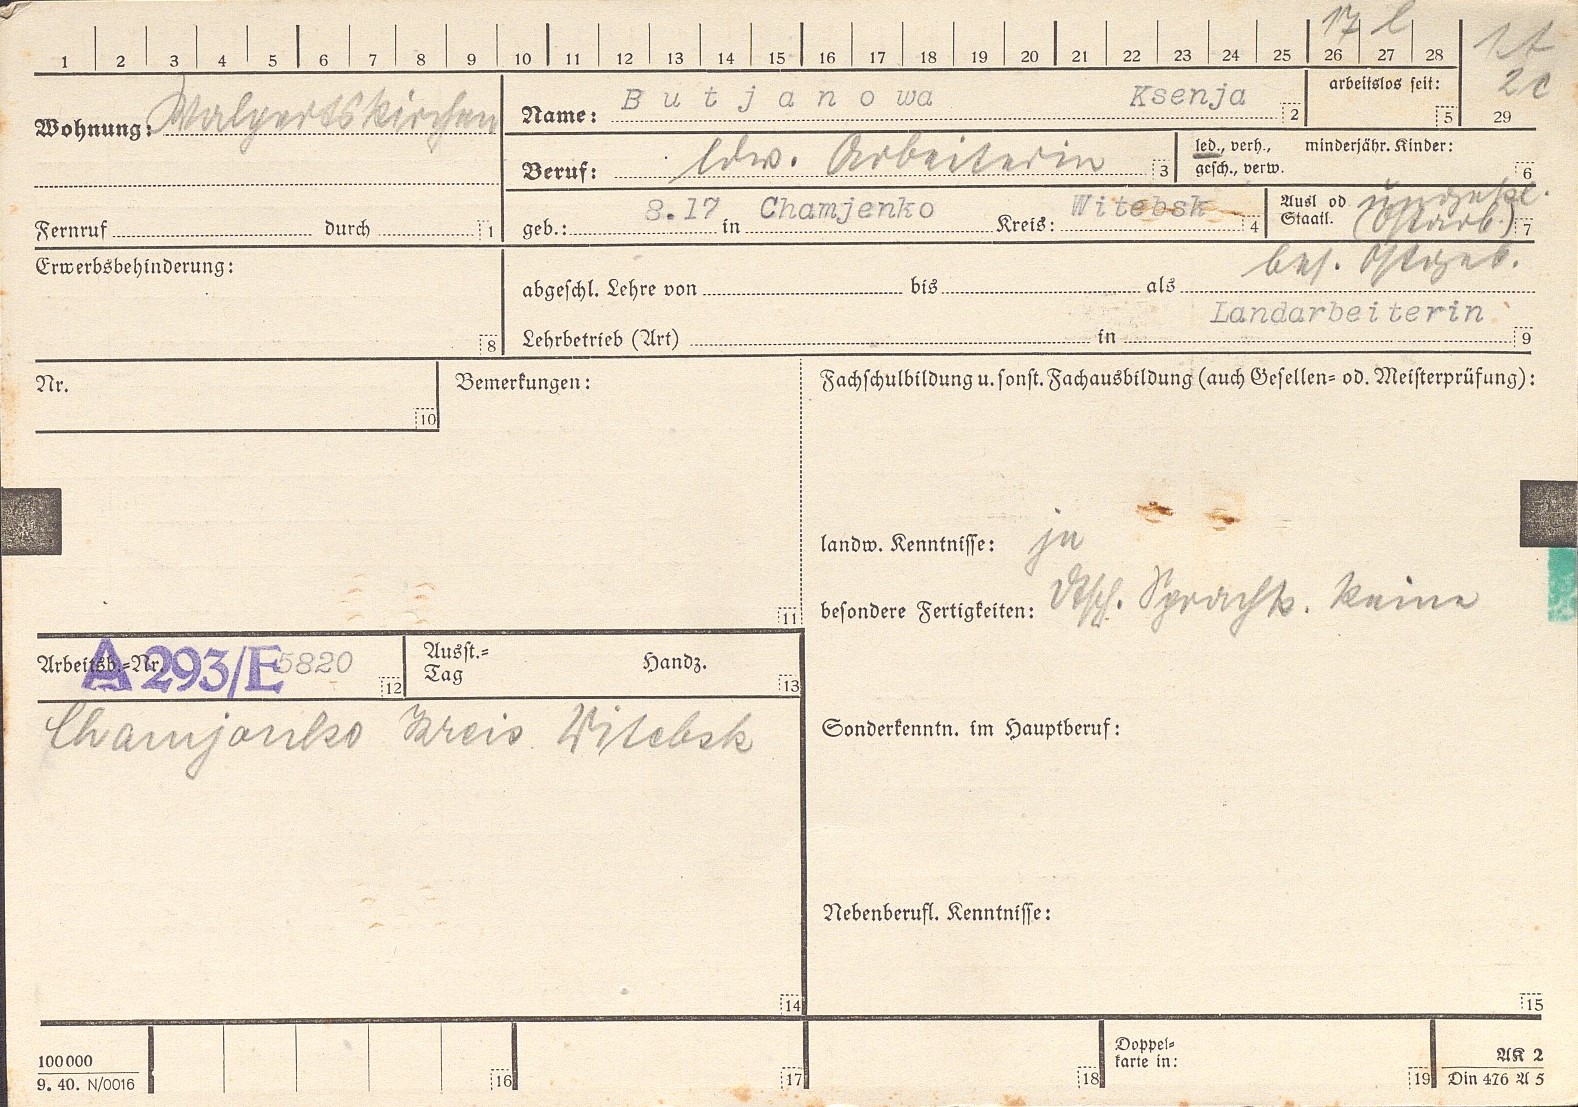 1 2 3 4 5 6 7 8 9 10 11 12 13 14 15 16 17 18 19 20 21 22 23 24 25 26 27 28 29
17 l
1t
2c
Wohnung: Walpertskirchen
Name: Butjanowa Ksenja 2
arbeitslos seit: 5
Beruf: ldw. Arbeiterin 3
led., verh., minderjähr. Kinder:
gesch., verw. 6
Fernruf durch 1
geb.: 8.17 in Chamjenko Kreis: Witebsk 4
Ausl od
Staatl. ungekl.
(Ostarb.) 7
bes. Ostgeb.
Erwerbsbehinderung: 8
abgeschl. Lehre von bis als
Landarbeiterin
Lehrbetrieb (Art) in 9
Nr. 10
Bemerkungen: 11
Fachschulbildung u. sonst. Fachausbildung (auch Gesellen- od. Meisterprüfung):
landw. Kenntnisse: ja
besondere Fertigkeiten: dtsch. Sprachk. keine
Arbeitsb.-Nr. A 293/E 5820 12
Ausst.-
Tag Handz. 13
Chamjonko Kreis Witebsk
14
Sonderkenntn. im Hauptberuf:
Nebenberufl. Kenntnisse:
15
100000
9. 40. N/0016
16 17 18
Doppel-
karte in: 19
AK 2
Din 476 A 5